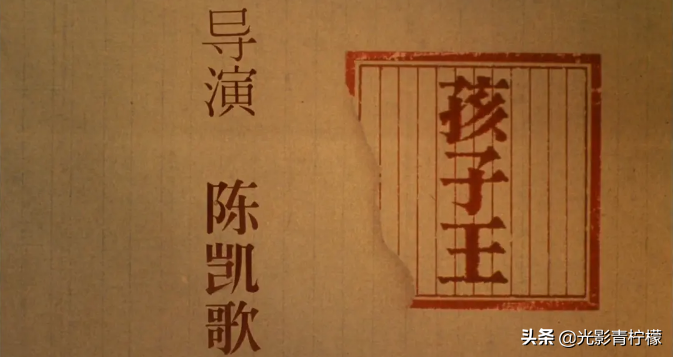 孩子王
导演 陈凯歌
头条 @光影青柠檬